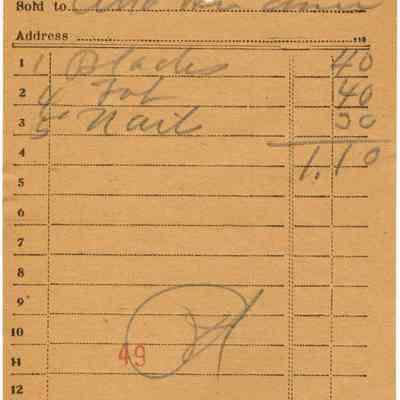 Sold to
Address
1 1 Blades 40
2 4 Fob 40
3 5 Nail 30
4 1.10
5
6
7
8
9
10
11 49
12